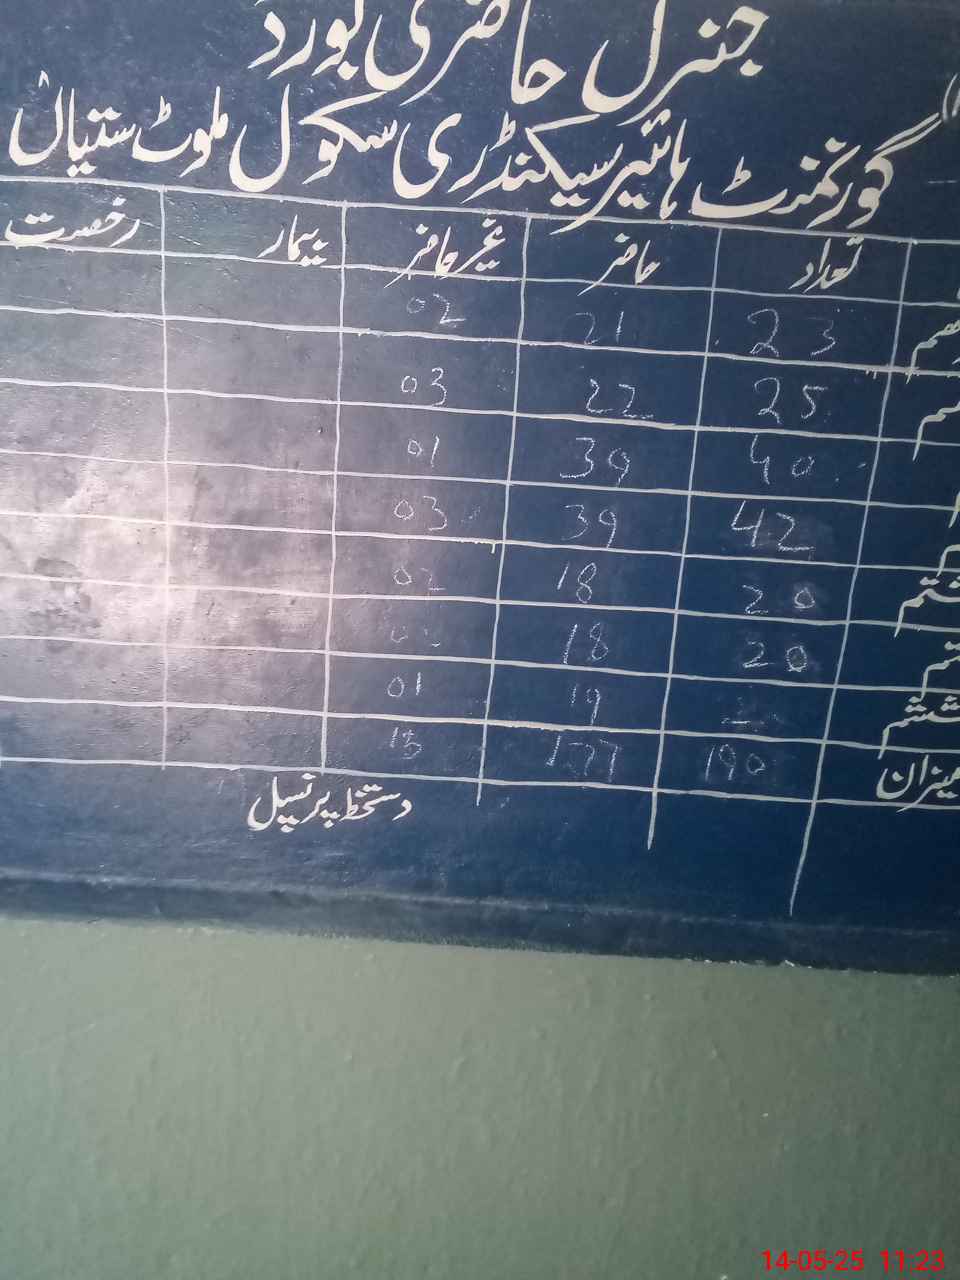 جنرل حاضری بورڈ
گورنمنٹ ہائیر سیکنڈری سکول ملوٹ ستیاں
تعداد حاضر غیر حاضر بیمار رخصت
23 21 02
25 22 03
40 39 01
42 39 03
20 18 02
20 18
ششم 19 01
میزان 190 177 13
دستخط پرنسپل
14-05-25 11:23